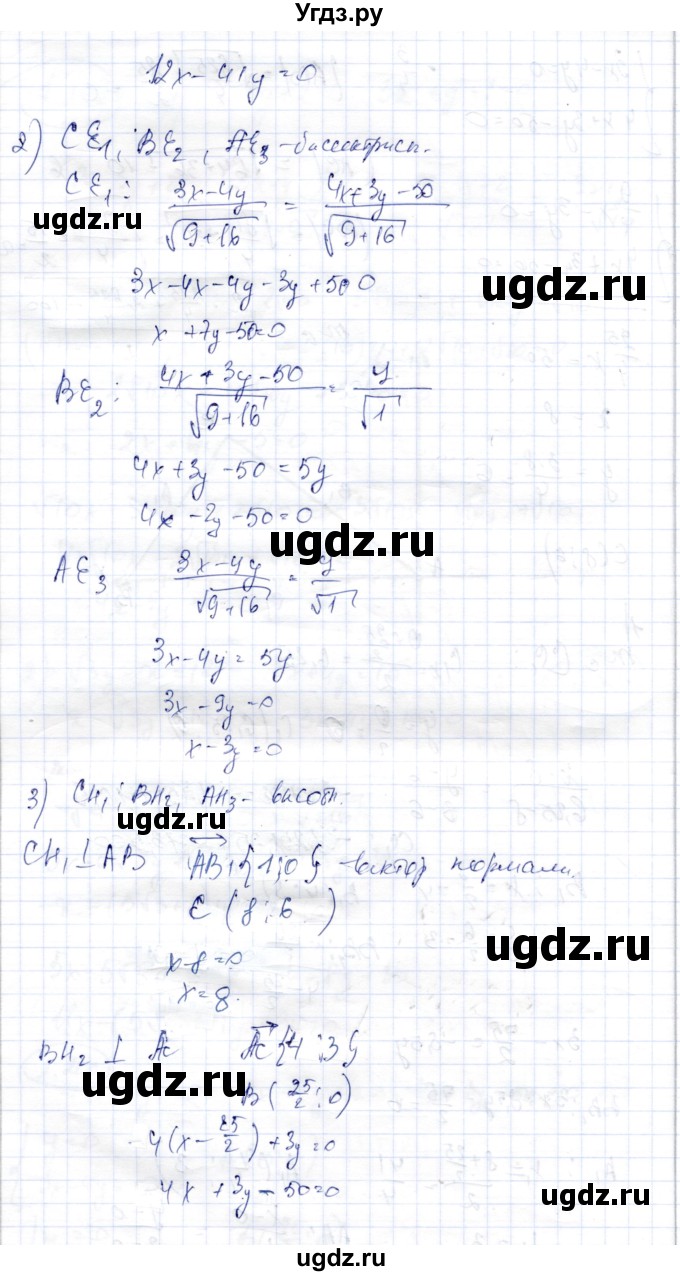 Угдз.ру
12x - 41y = 0
2) CE₁, BE₂, AE₃ - биссектрисы.
CE₁: (3x-4y)/√(9+16) = (4x+3y-50)/√(9+16)
ugdz.ru
ugdz.ru
3x-4x-4y-3y+50=0
x+7y-50=0
BE₂: (4x+3y-50)/√(9+16) = y/√1
4x+3y-50=5y
4x-2y-50=0
ugdz.ru
AE₃ (3x-4y)/√(9+16) = y/√1
3x-4y=5y
3x-9y=0
x-3y=0
3) CH₁, BH₂, AH₃ - высоты.
ugdz.ru
CH₁⊥AB AB{1;0} - вектор нормали.
C(8;6)
ugdz.ru
x-8=0
x=8.
BH₂ ⊥ AC AC{4;3}
ugdz.ru
B(25/2;0)
4(x-25/2)+3y=0
4x+3y-50=0
ugdz.ru
ugdz.ru